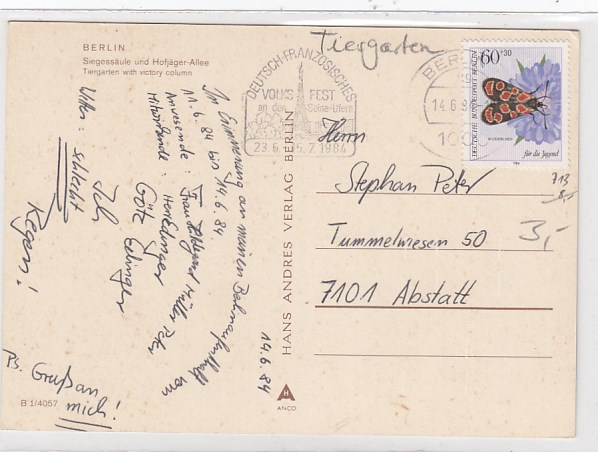 BERLIN
Siegessäule und Hofjäger-Allee
Tiergarten with victory column
Tiergarten
DEUTSCH-FRANZÖSISCHES
VOLKSFEST
an den Seine-Ufern
23.6. 15.7.1984
BER
14.6.8
1000
60+30
DEUTSCHE BUNDESPOST BERLIN
für die Jugend
In Erinnerung an meinen Bahnaufenthalt vom
11.6.84 bis 14.6.84.
Anwesende: Frau Müller
Mitreisende:
Götz
Ich
Wetter: schlecht
Regen!
14.6.84
Ps. Gruß an
mich!
Herrn
Stephan Peter
Tummelwiesen 50
7101 Abstatt
713
3,-
HANS ANDRES VERLAG BERLIN
H
ANCO
B 1/4057